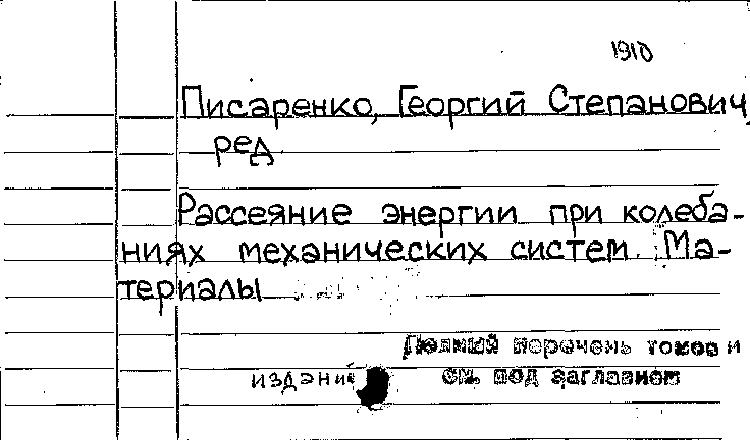 1910
Писаренко, Георгий Степанович,
ред.
Рассеяние энергии при колеба-
ниях механических систем. Ма-
териалы
Полный перечень томов и
изданий см. под заглавием